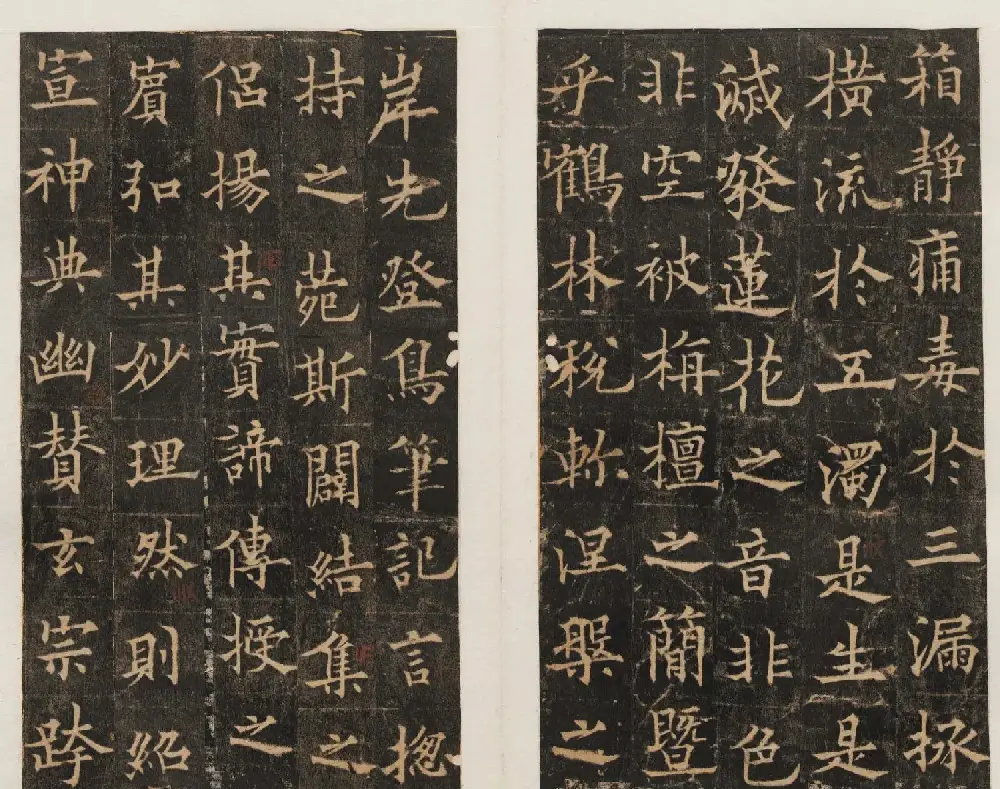 箱靜痡毒於三漏拯
橫流於五濁是生是
滅發蓮花之音非色
非空被栴檀之簡暨
乎鶴林稅軫涅槃之
岸先登鳥筆記言揔
持之菀斯闢結集之
侶揚其實諦傳授之
賓弘其妙理然則紹
宣神典幽贊玄宗跨